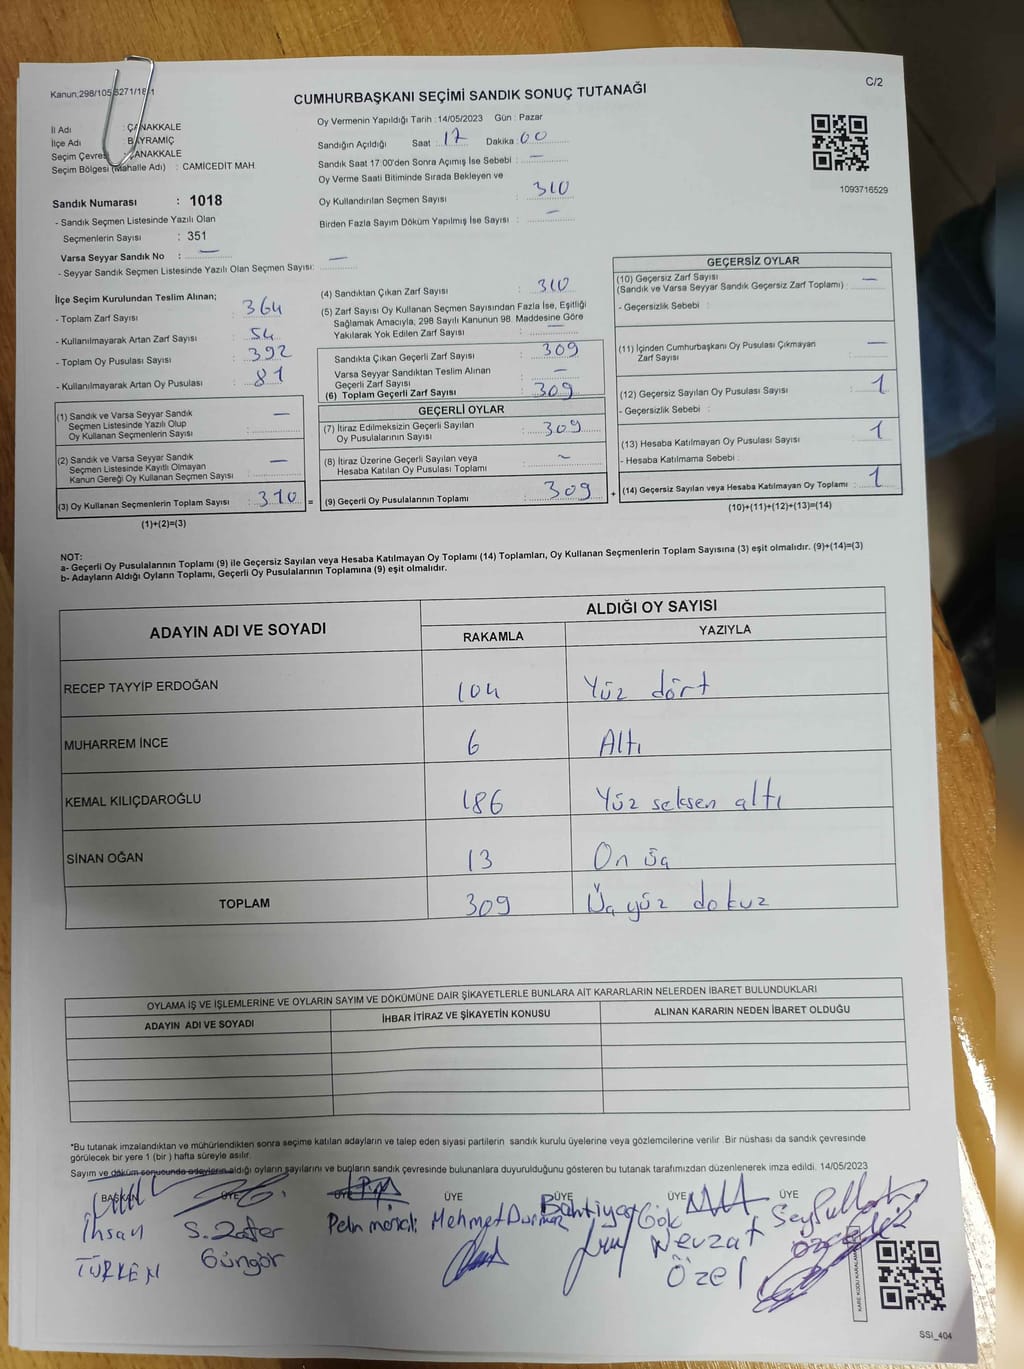 Kanun,298/105,6271/18-1
C/2
CUMHURBAŞKANI SEÇİMİ SANDIK SONUÇ TUTANAĞI
İl Adı : ÇANAKKALE
İlçe Adı : BAYRAMİÇ
Seçim Çevresi : ÇANAKKALE
Seçim Bölgesi (Mahalle Adı) : CAMİCEDİT MAH.
Sandık Numarası : 1018
- Sandık Seçmen Listesinde Yazılı Olan
Seçmenlerin Sayısı : 351
Varsa Seyyar Sandık No : —
- Seyyar Sandık Seçmen Listesinde Yazılı Olan Seçmen Sayısı: —
Oy Vermenin Yapıldığı Tarih : 14/05/2023 Gün : Pazar
Sandığın Açıldığı Saat : 17 Dakika : 00
Sandık Saat 17:00'den Sonra Açımış İse Sebebi : —
Oy Verme Saati Bitiminde Sırada Bekleyen ve
Oy Kullandırılan Seçmen Sayısı : 310
Birden Fazla Sayım Döküm Yapılmış İse Sayısı : —
1093716529
İlçe Seçim Kurulundan Teslim Alınan;
- Toplam Zarf Sayısı : 364
- Kullanılmayarak Artan Zarf Sayısı : 54
- Toplam Oy Pusulası Sayısı : 392
- Kullanılmayarak Artan Oy Pusulası : 81
(1) Sandık ve Varsa Seyyar Sandık
Seçmen Listesinde Yazılı Olup
Oy Kullanan Seçmenlerin Sayısı : —
(2) Sandık ve Varsa Seyyar Sandık
Seçmen Listesinde Kayıtlı Olmayan
Kanun Gereği Oy Kullanan Seçmen Sayısı : —
(3) Oy Kullanan Seçmenlerin Toplam Sayısı : 310 =
(1)+(2)=(3)
(4) Sandıktan Çıkan Zarf Sayısı : 310
(5) Zarf Sayısı Oy Kullanan Seçmen Sayısından Fazla İse, Eşitliği
Sağlamak Amacıyla, 298 Sayılı Kanunun 98. Maddesine Göre
Yakılarak Yok Edilen Zarf Sayısı : —
Sandıkta Çıkan Geçerli Zarf Sayısı : 309
Varsa Seyyar Sandıktan Teslim Alınan
Geçerli Zarf Sayısı : —
(6) Toplam Geçerli Zarf Sayısı : 309
GEÇERLİ OYLAR
(7) İtiraz Edilmeksizin Geçerli Sayılan
Oy Pusulalarının Sayısı : 309
(8) İtiraz Üzerine Geçerli Sayılan veya
Hesaba Katılan Oy Pusulası Toplamı : ~
(9) Geçerli Oy Pusulalarının Toplamı : 309 +
GEÇERSİZ OYLAR
(10) Geçersiz Zarf Sayısı
(Sandık ve Varsa Seyyar Sandık Geçersiz Zarf Toplamı) : —
- Geçersizlik Sebebi :
(11) İçinden Cumhurbaşkanı Oy Pusulası Çıkmayan
Zarf Sayısı : —
(12) Geçersiz Sayılan Oy Pusulası Sayısı : 1
- Geçersizlik Sebebi :
(13) Hesaba Katılmayan Oy Pusulası Sayısı : 1
- Hesaba Katılmama Sebebi :
(14) Geçersiz Sayılan veya Hesaba Katılmayan Oy Toplamı : 1
(10)+(11)+(12)+(13)=(14)
NOT:
a- Geçerli Oy Pusulalarının Toplamı (9) ile Geçersiz Sayılan veya Hesaba Katılmayan Oy Toplamı (14) Toplamları, Oy Kullanan Seçmenlerin Toplam Sayısına (3) eşit olmalıdır. (9)+(14)=(3)
b- Adayların Aldığı Oyların Toplamı, Geçerli Oy Pusulalarının Toplamına (9) eşit olmalıdır.
ADAYIN ADI VE SOYADI ALDIĞI OY SAYISI
RAKAMLA YAZIYLA
RECEP TAYYİP ERDOĞAN 104 Yüz dört
MUHARREM İNCE 6 Altı
KEMAL KILIÇDAROĞLU 186 Yüz seksen altı
SİNAN OĞAN 13 On üç
TOPLAM 309 Üç yüz dokuz
OYLAMA İŞ VE İŞLEMLERİNE VE OYLARIN SAYIM VE DÖKÜMÜNE DAİR ŞİKAYETLERLE BUNLARA AİT KARARLARIN NELERDEN İBARET BULUNDUKLARI
ADAYIN ADI VE SOYADI İHBAR İTİRAZ VE ŞİKAYETİN KONUSU ALINAN KARARIN NEDEN İBARET OLDUĞU
*Bu tutanak imzalandıktan ve mühürlendikten sonra seçime katılan adayların ve talep eden siyasi partilerin sandık kurulu üyelerine veya gözlemcilerine verilir. Bir nüshası da sandık çevresinde
görülecek bir yere 1 (bir) hafta süreyle asılır.
Sayım ve döküm sonucunda adayların aldığı oyların sayılarını ve bunların sandık çevresinde bulunanlara duyurulduğunu gösteren bu tutanak tarafımızdan düzenlenerek imza edildi. 14/05/2023
BAŞKAN ÜYE ÜYE ÜYE ÜYE ÜYE ÜYE
İhsan TÜRKEN
S. Zafer Güngör
Pelin
Mehmet Durmaz
Bahtiyar Gök
Nevzat Özel
Seyfullah
SSİ_404